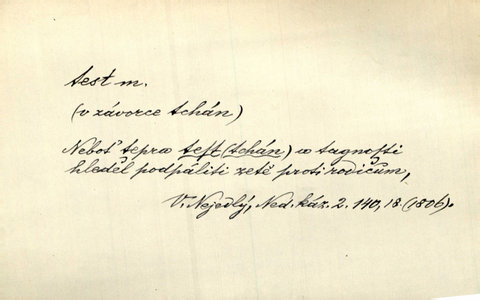 test m.
(v závorce tchán)
Neboť tepra teſt (tchán) w tagnoſti
hleděl podpáliti zetě proti rodičům,
V. Nejedlý, Ned. káz. 2. 140, 18. (1806).